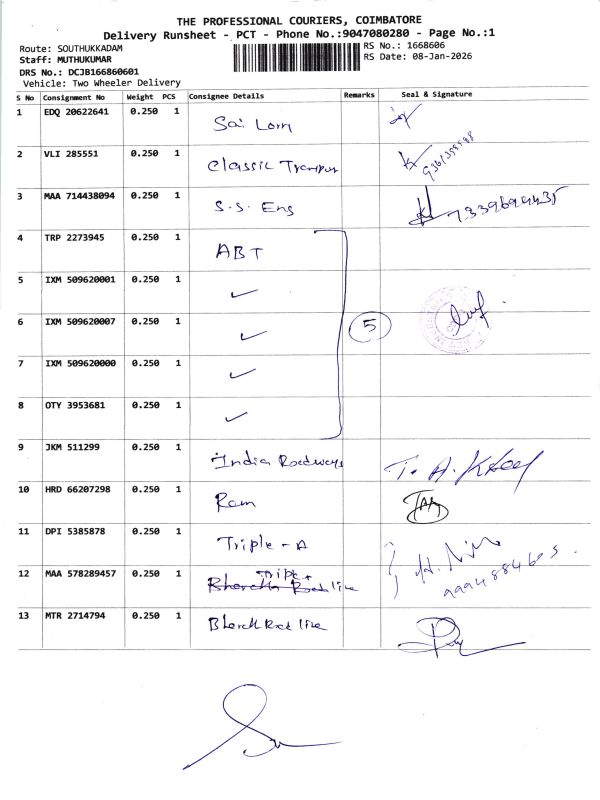 THE PROFESSIONAL COURIERS, COIMBATORE
Delivery Runsheet - PCT - Phone No.:9047080280 - Page No.:1
Route: SOUTHUKKADAM
RS No.: 1668606
Staff: MUTHUKUMAR
RS Date: 08-Jan-2026
DRS No.: DCJB166860601
Vehicle: Two Wheeler Delivery
S No Consignment No Weight PCS Consignee Details Remarks Seal & Signature
1 EDQ 20622641 0.250 1 Sai Lorry
2 VLI 285551 0.250 1 Classic Transport
3 MAA 714438094 0.250 1 S.S. Eng 7339699435
4 TRP 2273945 0.250 1 ABT
5 IXM 509620001 0.250 1 ✓
6 IXM 509620007 0.250 1 ✓ 5
7 IXM 509620000 0.250 1 ✓
8 OTY 3953681 0.250 1 ✓
9 JKM 511299 0.250 1 India Roadways
10 HRD 66207298 0.250 1 Ram
11 DPI 5385878 0.250 1 Triple - A
12 MAA 578289457 0.250 1 Triple A
13 MTR 2714794 0.250 1 Bharath Road line